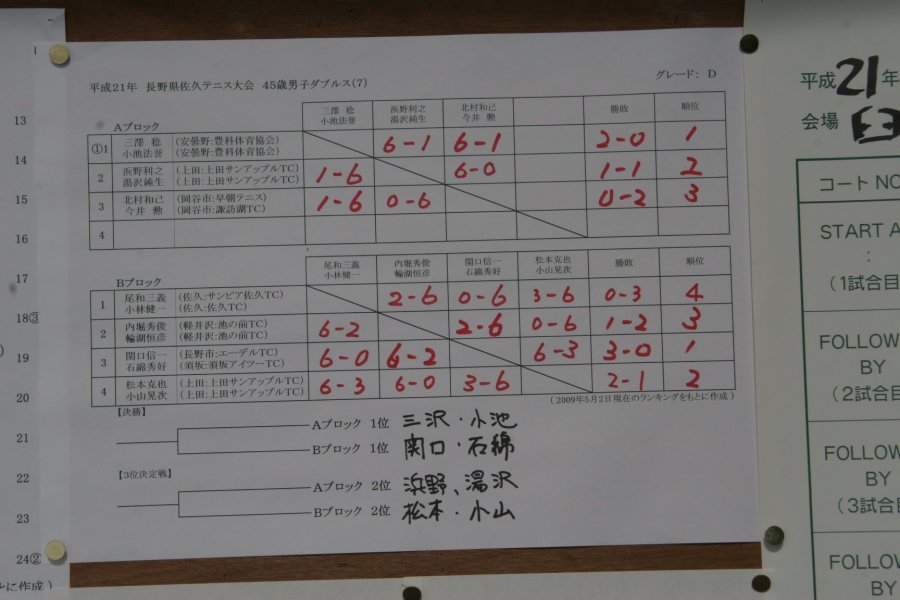 平成21年 長野県佐久テニス大会 45歳男子ダブルス(7) グレード: D
三澤 稔 浜野利之 北村和己 勝敗 順位
小池法誉 湯沢純生 今井 勲
Aブロック
①1 三澤 稔 (安曇野:豊科体育協会) 6-1 6-1 2-0 1
小池法誉 (安曇野:豊科体育協会)
2 浜野利之 (上田:上田サンアップルTC) 1-6 6-0 1-1 2
湯沢純生 (上田:上田サンアップルTC)
3 北村和己 (岡谷市:早朝テニス) 1-6 0-6 0-2 3
今井 勲 (岡谷市:諏訪湖TC)
4
尾和三義 内堀秀俊 関口信一 松本克也 勝敗 順位
小林健一 輪湖恒彦 石綿秀好 小山晃次
Bブロック
1 尾和三義 (佐久:サンピア佐久TC) 2-6 0-6 3-6 0-3 4
小林健一 (佐久:佐久TC)
2 内堀秀俊 (軽井沢:池の前TC) 6-2 2-6 0-6 1-2 3
輪湖恒彦 (軽井沢:池の前TC)
3 関口信一 (長野市:エーデルTC) 6-0 6-2 6-3 3-0 1
石綿秀好 (須坂:須坂アイツーTC)
4 松本克也 (上田:上田サンアップルTC) 6-3 6-0 3-6 2-1 2
小山晃次 (上田:上田サンアップルTC)
(2009年5月2日現在のランキングをもとに作成)
【決勝】
Aブロック 1位 三沢・小池
Bブロック 1位 関口・石綿
【3位決定戦】
Aブロック 2位 浜野、湯沢
Bブロック 2位 松本・小山
13
14
15
16
17
18③
19
20
21
22
23
24②
とに作成)
平成21年
会場
コート NO
START A
:
(1試合目
FOLLOW
BY
(2試合目
FOLLOW
BY
(3試合目
FOLLOW
BY